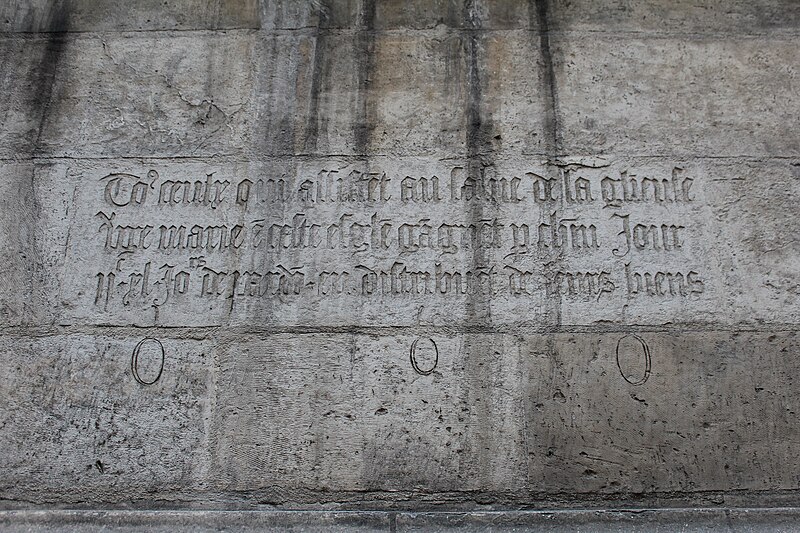 To⁹ ceulx qui assistēt au salue de la gl̄ieuse
v̄ge marie ē ceste esgl̄e gāgnēt p chm̄ Jour
ijᶜ xl Joʳˢ de pardō en distribuēt de leurs biens
O O O